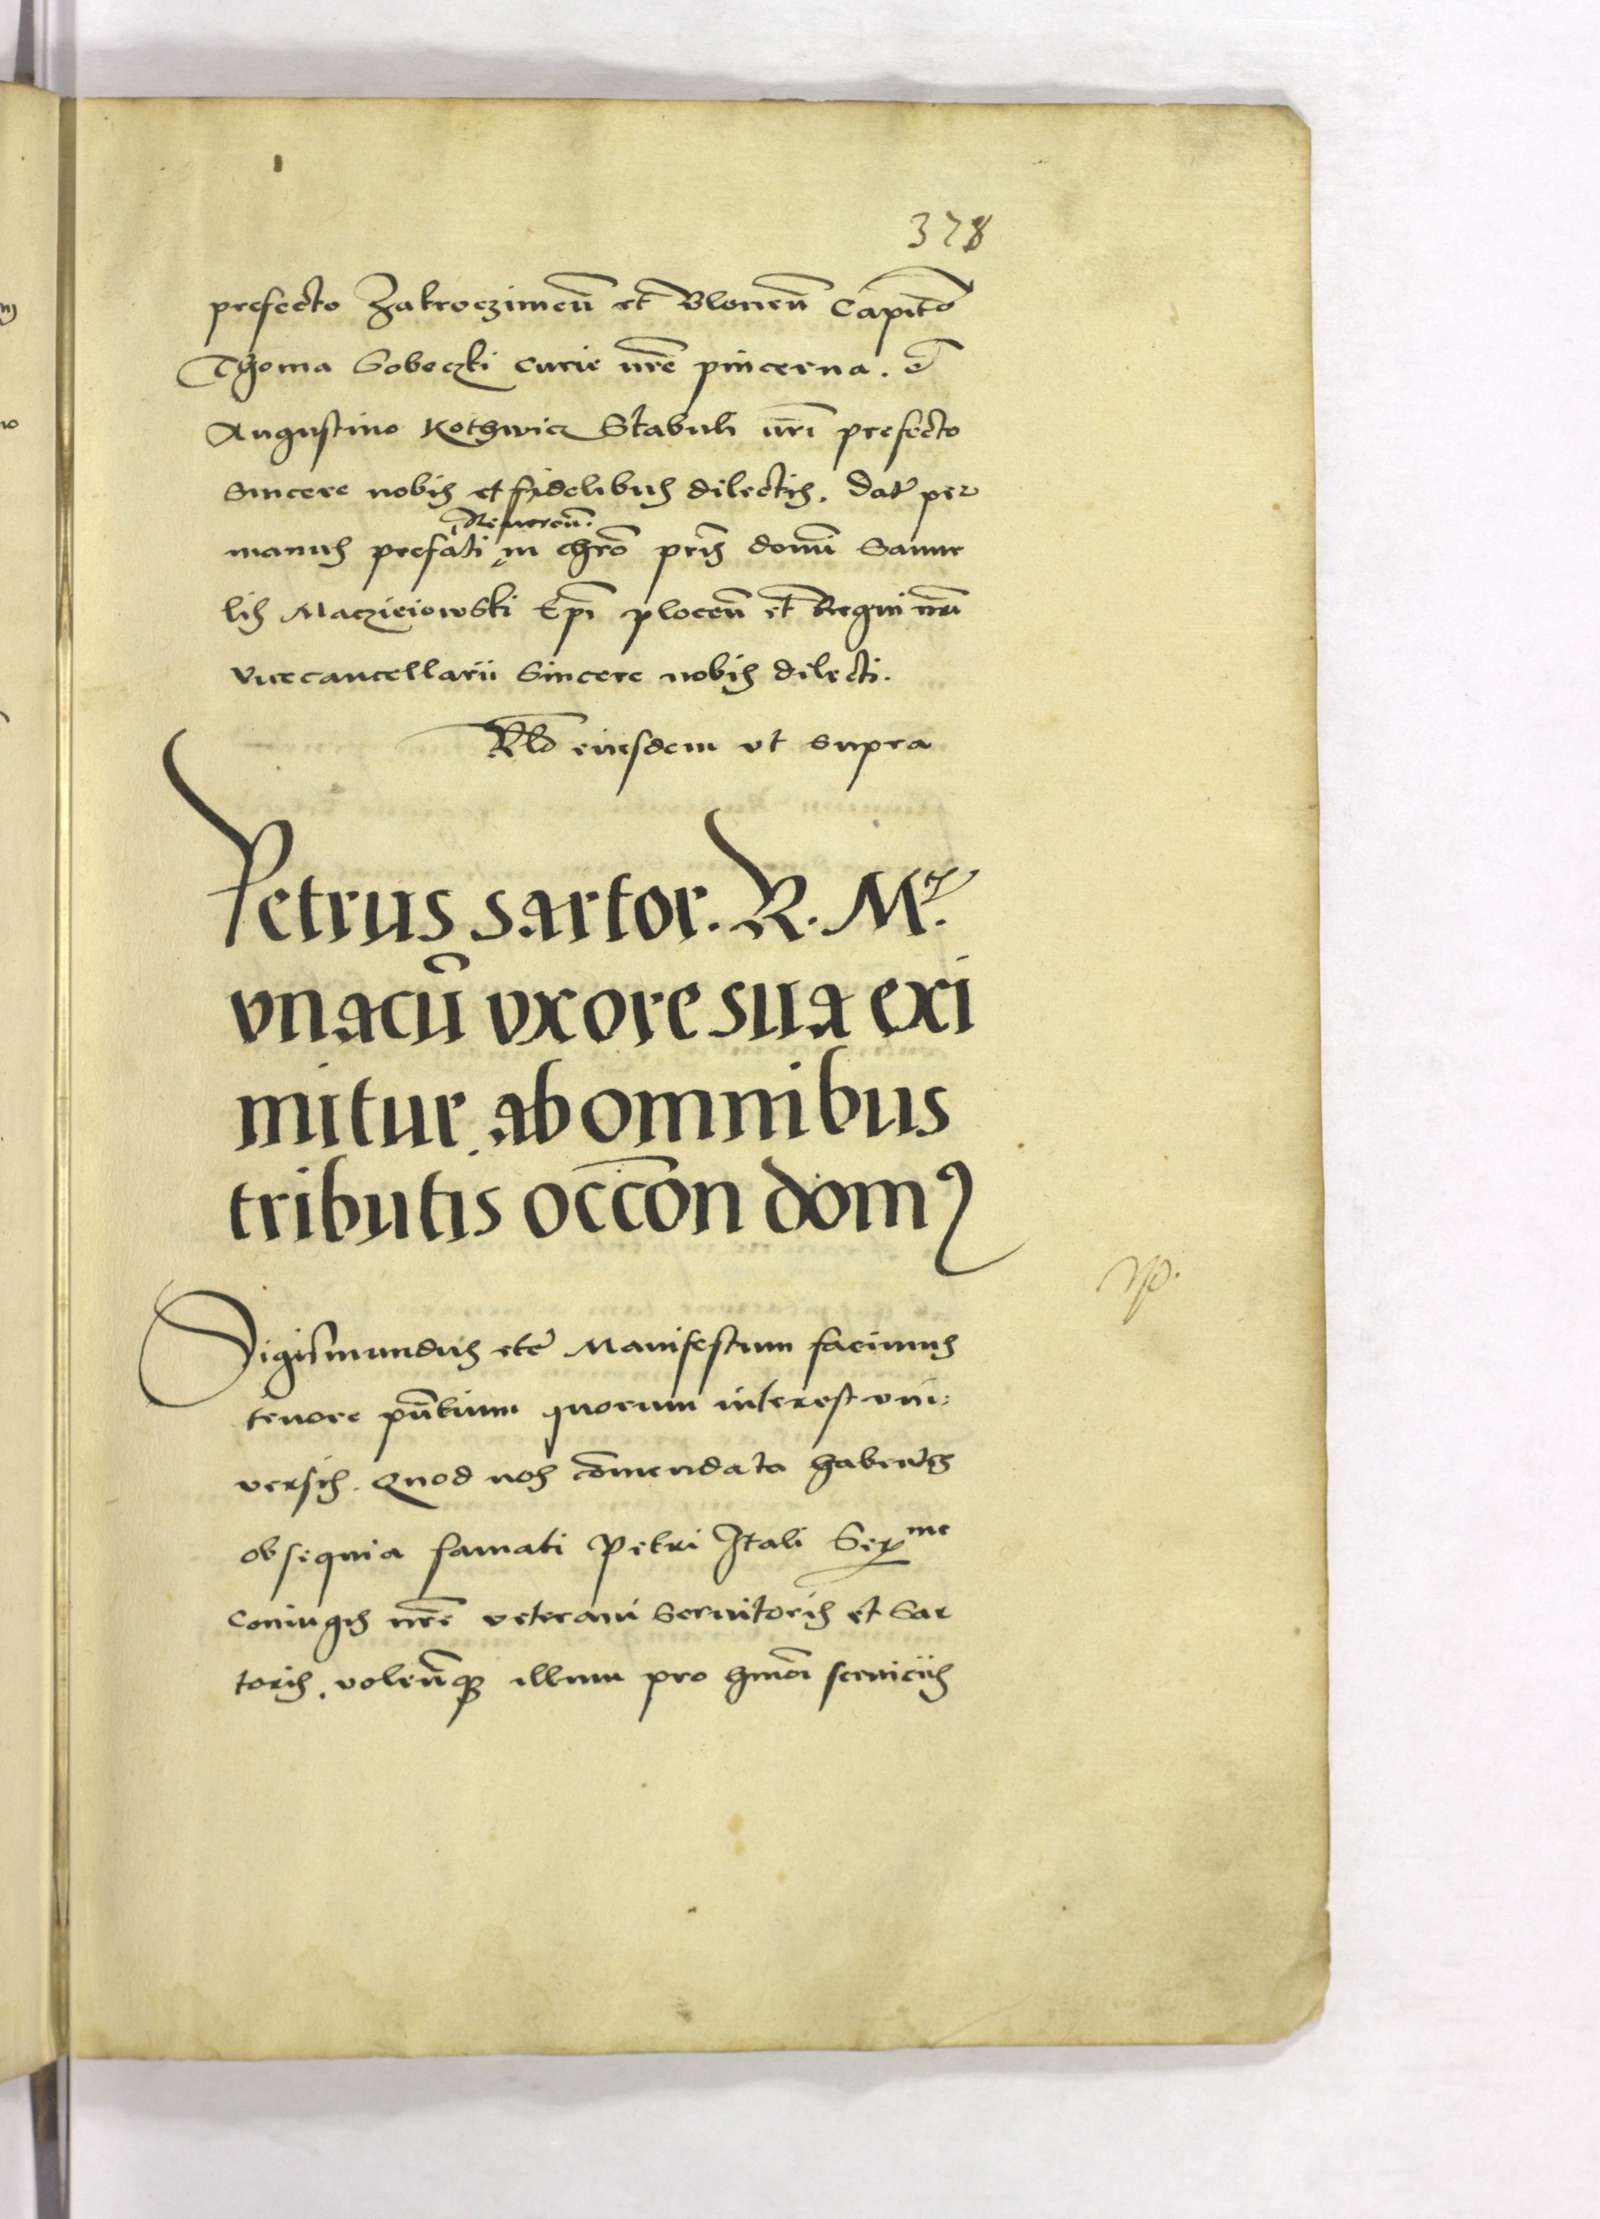 378
prefecto Zakroczimeñ et Bloneñ Capitō
Thoma Soboczki curie nrē pincerna. ē
Augustino Kothwicz Stabuli nrī prefecto
Sincere nobis et fidelibus dilectis. Dat per
Reuereñ.
manus prefati in chrō pris domī Samue
lis Macziejowski Epī ploceñ et Regni nrī
vicecancellarii Sincere nobis dilecti.
Rlō eiusdem vt supra
Petrus sartor. R. Mtis.
vnacū vxore sua exi
mitur ab omnibus
tributis occōn domꝰ
Sigismundus etc̄ Manifestum facimus
tenore pñtium quorum interest vni:
versis. Quod nos cōmendata habentes
obsequia famati Petri Itali Serme
Coniugis nrē veterani Seruitoris et Sar
toris, volenq̄ illum pro hmōi seruiciis